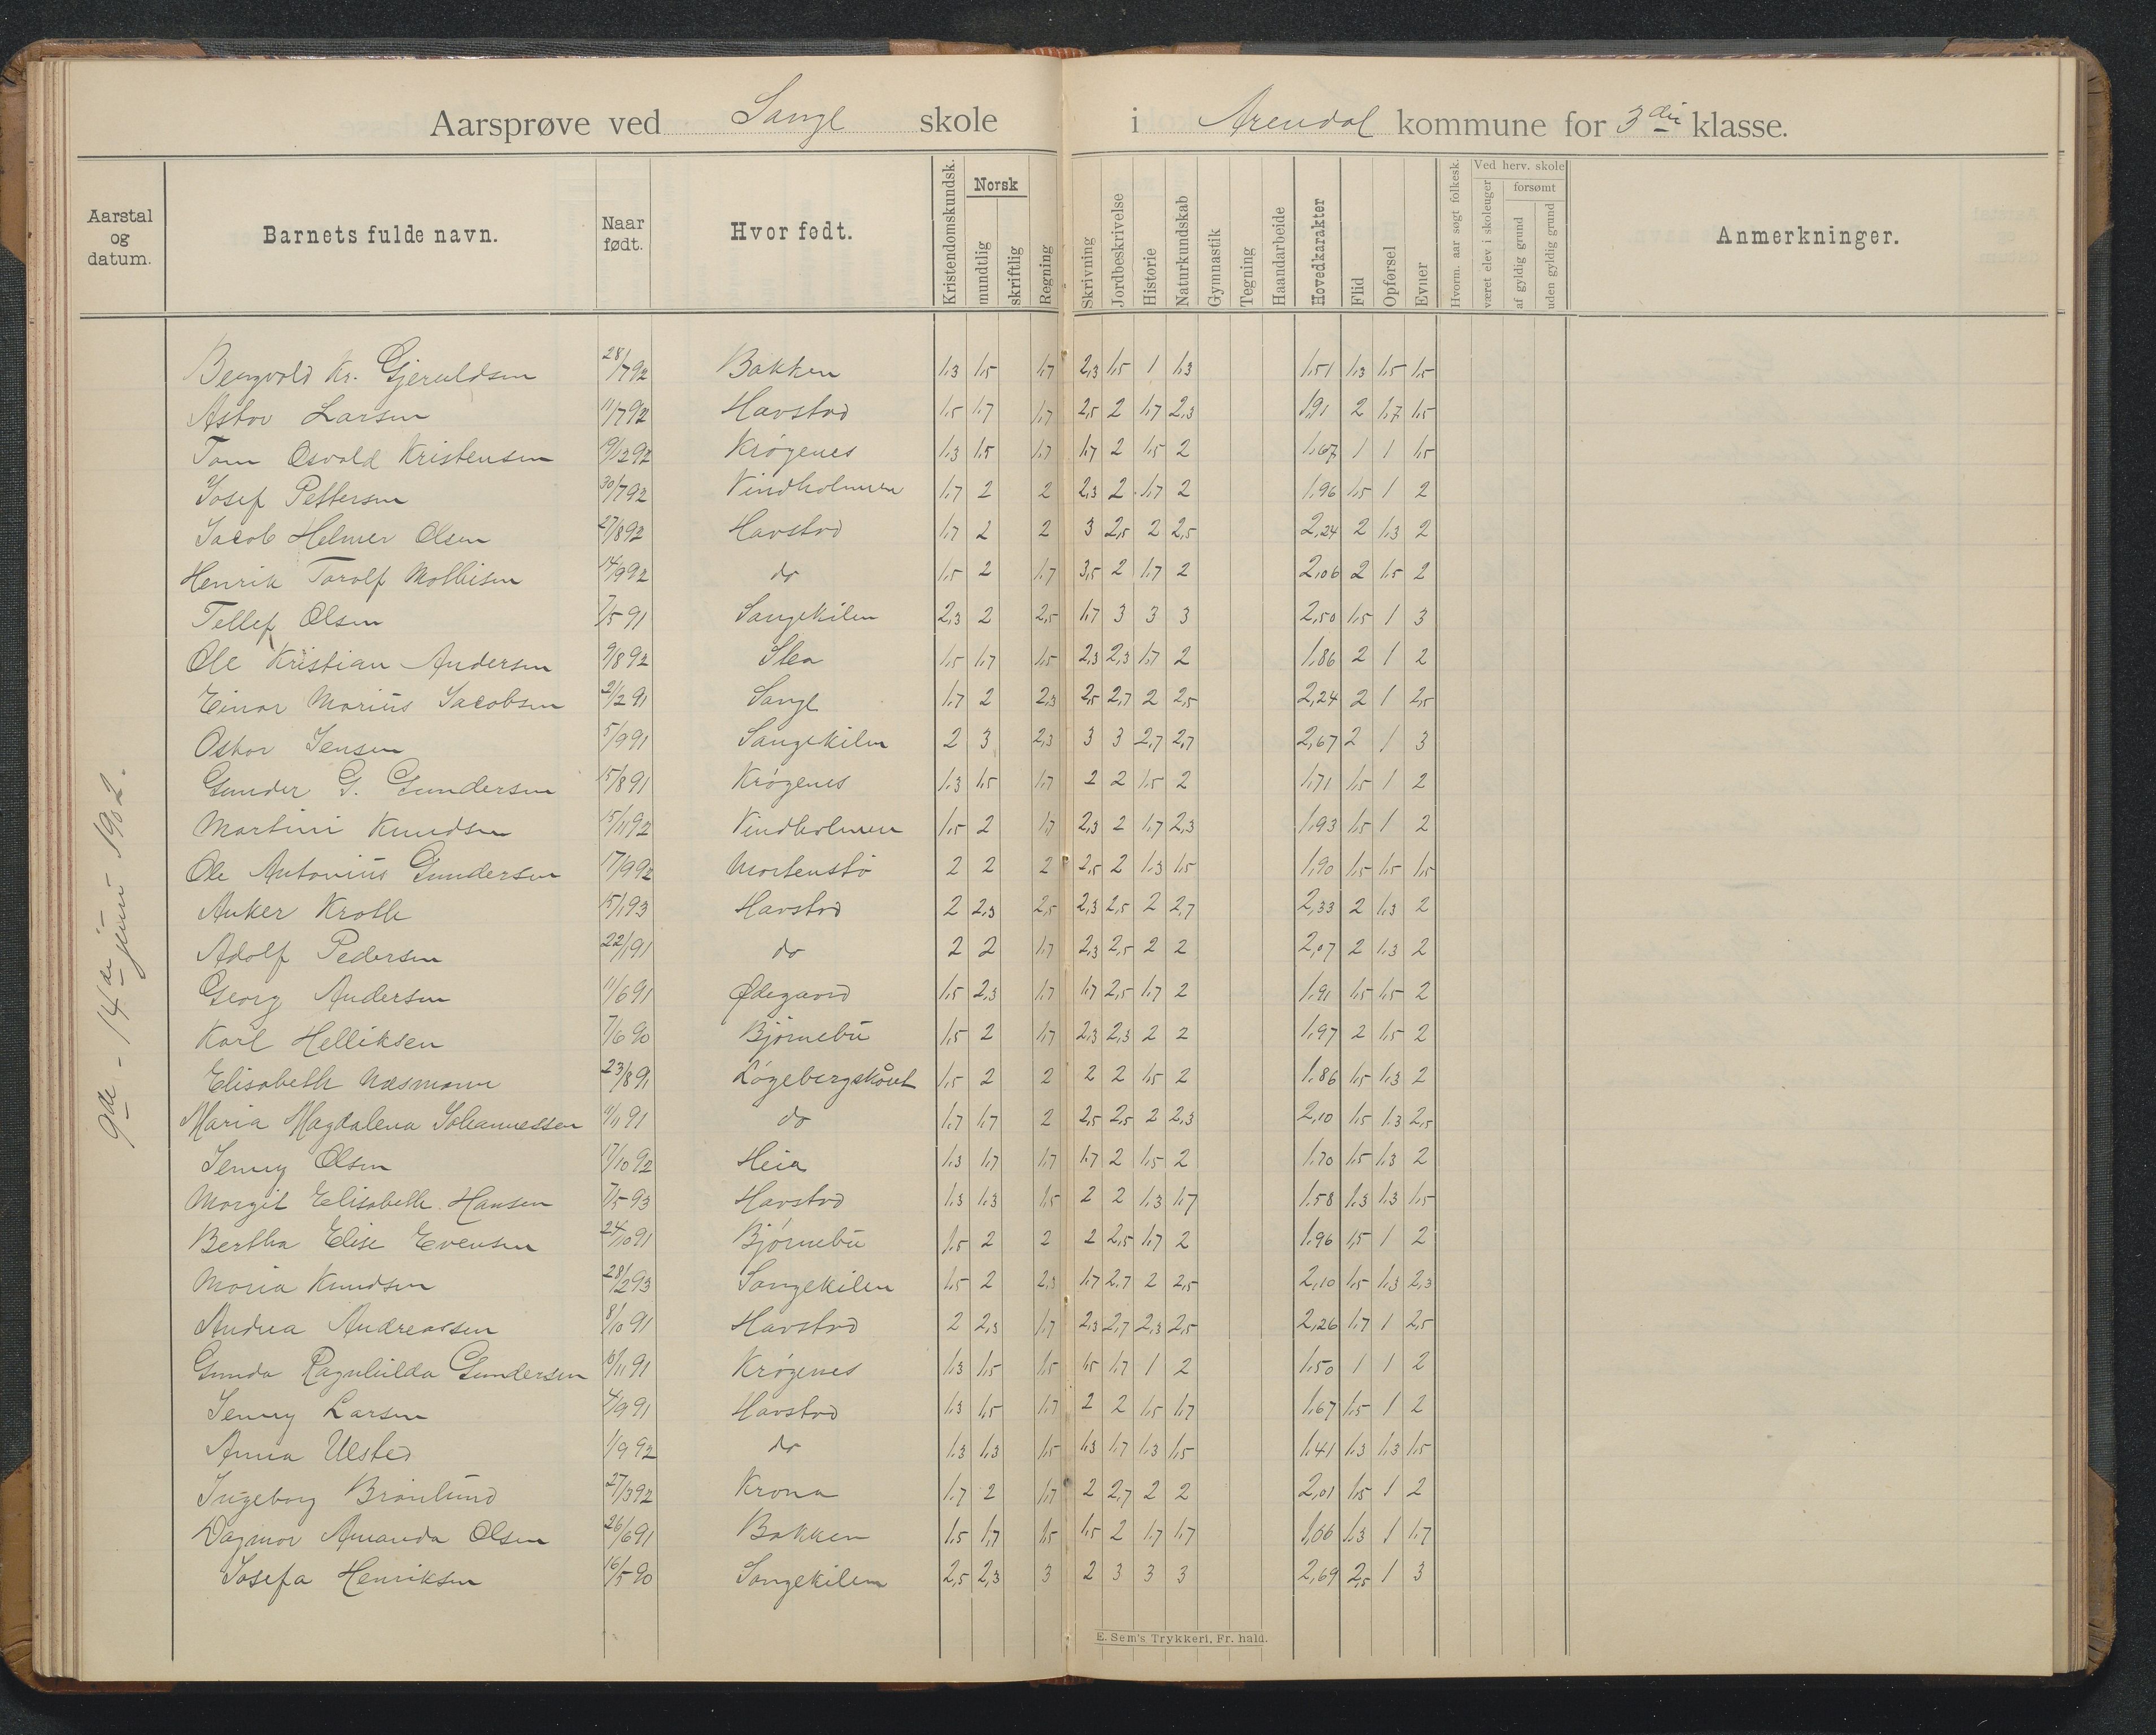 Aarsprøve ved Sange skole i Arendal kommune for 3die klasse.
Aarstal og datum. Barnets fulde navn. Naar født. Hvor født. Kristendomskundsk. Norsk mundtlig skriftlig Regning Skrivning Jordbeskrivelse Historie Naturkundskab Gymnastik Tegning Haandarbeide Hovedkarakter Flid Opførsel Evner Hvorm. aar søgt folkesk. Ved herv. skole været elev i skoleuger forsømt af gyldig grund uden gyldig grund Anmerkninger.
9de - 14de juni 1902.
Bergvald Kr. Gjeruldsen 28/7 92 Bakken 1,3 1,5 1,7 2,3 1,5 1 1,3 1,51 1,3 1,5 1,5
Astor Larsen 11/7 92 Havstad 1,5 1,7 1,7 2,5 2 1,7 2,3 1,91 2 1,7 1,5
Tom Osvald Kristensen 19/12 92 Krøgenes 1,3 1,5 1,7 1,7 2 1,5 2 1,67 1 1 1,5
Josef Pettersen 30/7 92 Vindholmen 1,7 2 2 2,3 2 1,7 2 1,96 1,5 1 2
Jacob Helmer Olsen 27/8 92 Havstad 1,7 2 2 3 2,5 2 2,5 2,24 2 1,3 2
Henrik Torolf Mathisen 14/9 92 do 1,5 2 1,7 3,5 2 1,7 2 2,06 2 1,5 2
Tellef Olsen 7/5 91 Sangekilen 2,3 2 2,5 1,7 3 3 3 2,50 1,5 1 3
Ole Kristian Andersen 9/8 92 Slea 1,5 1,7 1,5 2,3 2,3 1,7 2 1,86 2 1 2
Einar Marius Jacobsen 21/2 91 Sange 1,7 2 2,3 2,5 2,7 2 2,5 2,24 2 1 2,5
Oskar Jensen 5/9 91 Sangekilen 2 3 2,3 3 3 2,7 2,7 2,67 2 1 3
Gunder G. Gundersen 15/8 91 Krøgenes 1,3 1,5 1,7 2 2 1,5 2 1,71 1,5 1 2
Martini Knudsen 15/11 92 Vindholmen 1,5 2 1,7 2,3 2 1,7 2,3 1,93 1,5 1 2
Ole Antonius Gundersen 17/9 92 Mortenstø 2 2 2 2,5 2 1,3 1,5 1,90 1,5 1,5 1,5
Anker Krotte 15/1 93 Havstad 2 2,3 2,5 2,3 2,5 2 2,7 2,33 2 1,3 2
Adolf Pedersen 22/1 91 do 2 2 1,7 2,3 2,5 2 2 2,07 2 1,3 2
Georg Andersen 11/6 91 Ødegaard 1,5 2,3 1,7 1,7 2,5 1,7 2 1,91 1,5 1,5 2
Karl Helliksen 7/6 90 Bjørnebu 1,5 2 1,7 2,3 2,3 2 2 1,97 2 1,5 2
Elisabeth Næsmann 23/8 91 Løgebergskåret 1,5 2 2 2 2 1,5 2 1,86 1,5 1,3 2
Maria Magdalena Johannessen 11/11 91 do 1,7 1,7 2 2,5 2,5 2 2,3 2,10 1,5 1,3 2,5
Jenny Olsen 17/10 92 Heia 1,3 1,7 1,7 1,7 2 1,5 2 1,70 1,5 1,3 2
Margit Elisabeth Hansen 7/5 93 Havstad 1,3 1,3 1,5 2 2 1,3 1,7 1,58 1,3 1,3 1,5
Bertha Elise Evensen 24/10 91 Bjørnebu 1,5 2 2 2 2,5 1,7 2 1,96 1,5 1 2
Maria Knudsen 28/2 93 Sangekilen 1,5 2 2,3 1,7 2,7 2 2,5 2,10 1,5 1,3 2,3
Andrea Andreassen 8/10 91 Havstad 2 2,3 1,7 2,3 2,7 2,3 2,5 2,26 1,7 1 2,5
Gunda Ragnhilda Gundersen 10/11 91 Krøgenes 1,3 1,5 1,5 1,5 1,7 1 2 1,50 1 1 2
Jenny Larsen 4/9 91 Havstad 1,3 1,5 1,7 2 2 1,5 1,7 1,67 1,5 1 2
Anna Ulsted 1/9 92 do 1,3 1,3 1,5 1,3 1,7 1,3 1,5 1,41 1,3 1,3 1,5
Ingeborg Brønlund 27/3 92 Krona 1,7 2 1,7 2 2,7 2 2 2,01 1,5 1 2
Dagmar Amanda Olsen 26/6 91 Bakken 1,5 1,7 1,5 1,5 2 1,7 1,7 1,66 1,3 1 1,7
Josefa Henriksen 16/5 90 Sangekilen 2,5 2,3 3 2 3 3 3 2,69 2,5 1 3
E. Sem's Trykkeri, Fr. hald.